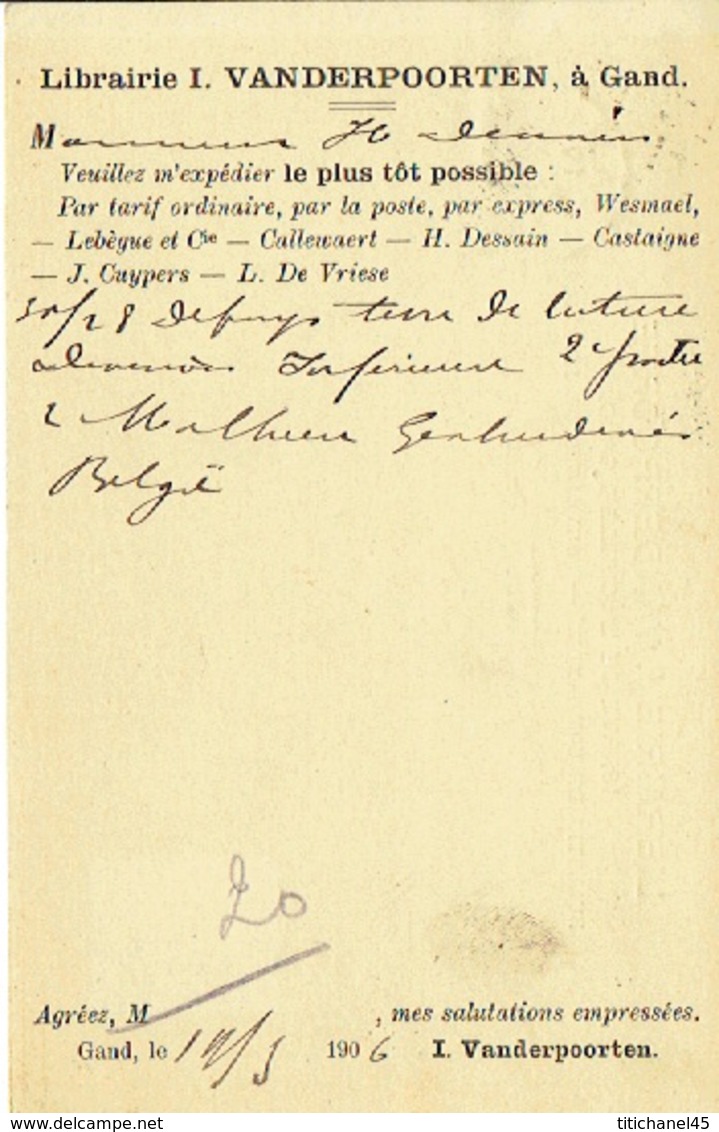 Librairie I. VANDERPOORTEN, à Gand.
Monsieur H
Veuillez m'expédier le plus tôt possible :
Par tarif ordinaire, par la poste, par express, Wesmael,
— Lebègue et Cie — Callewaert — H. Dessain — Castaigne
— J. Cuypers — L. De Vriese
de lecture
Inférieure
2 Mathieu
België
20
Agréez, M , mes salutations empressées.
Gand, le 1906 I. Vanderpoorten.
titichanel45